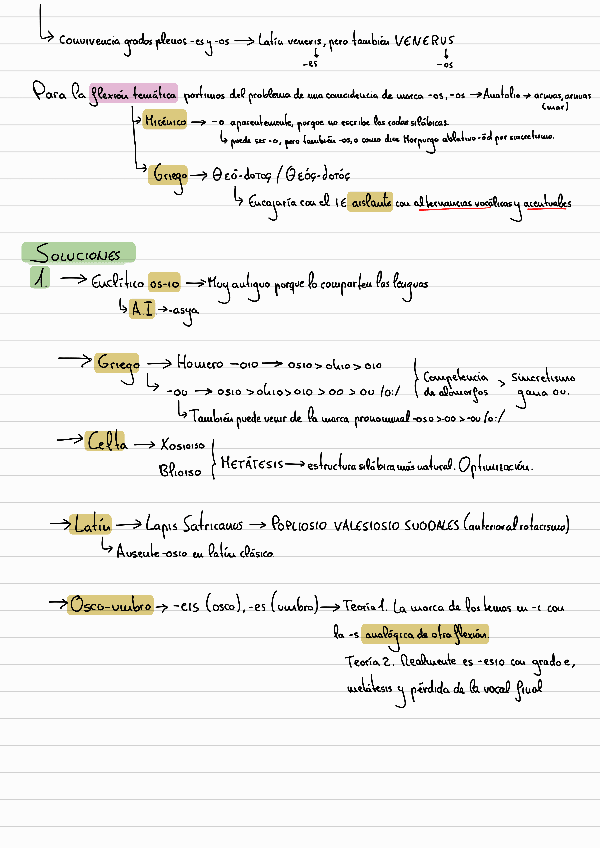 ↳ Convivencia grados plenos -es y -os → Latín veneris, pero también VENERUS
↓ ↓
-es -os
Para la flexión temática partimos del problema de una coincidencia de marca -os, -os → Anatolio → arunas, arunas
(mar)
Micénico → -o aparentemente, porque no escribe las codas silábicas.
↳ puede ser -o, pero también -os, o como dice Morpurgo ablativo -ōd por sincretismo.
Griego → Θεό-δοτος / Θεός-δοτός
↳ Encajaría con el IE aislante con alternancias vocálicas y acentuales
SOLUCIONES
1. → Enclítico os-io → Muy antiguo porque lo comparten las lenguas
↳ A.I → -asya
→ Griego → Homero -οιο → osio > ohio > oio
↳ -ου → osio > ohio > oio > oo > ου /o:/
Competencia de alomorfos > Sincretismo gana ου.
↳ También puede venir de la marca pronominal -oso > -oo > -ου /o:/
→ Celta → Xosioiso
Blioiso
METÁTESIS → estructura silábica más natural. Optimización.
→ Latín → Lapis Satricanus → POPLIOSIO VALESIOSIO SUODALES (anterior al rotacismo)
↳ Ausente -osio en latín clásico
→ Osco-umbro → -eis (osco), -es (umbro) → Teoría 1. La marca de los temas en -i con
la -s analógica de otra flexión.
Teoría 2. Realmente es -esio con grado e,
metátesis y pérdida de la vocal final